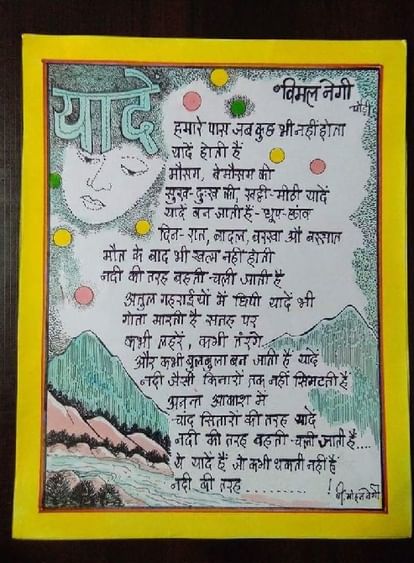 यादें
विमल नेगी
पौड़ी
हमारे पास जब कुछ भी नहीं होता
यादें होती हैं
मौसम, बेमौसम की
सुख-दुःख की, खट्टी-मीठी यादें
यादें बन जाती हैं-धूप-छांव
दिन-रात, बादल, बरखा औ बरसात
मौत के बाद भी खत्म नहीं होती
नदी की तरह बहती-चली जाती है
अतुल गहराईयों में छिपी यादें भी
गोता मारती है सतह पर
कभी लहरें, कभी तंरगे
और कभी बुलबुला बन जाती हैं यादें
नदी जैसी किनारों तक नहीं सिमटती हैं
अनन्त आकाश में
चांद सितारों की तरह यादें
नदी की तरह बहती-चली जाती हैं....
ये यादें हैं जो कभी थकती नहीं हैं
नदी की तरह ..........!
बी. मोहन नेगी